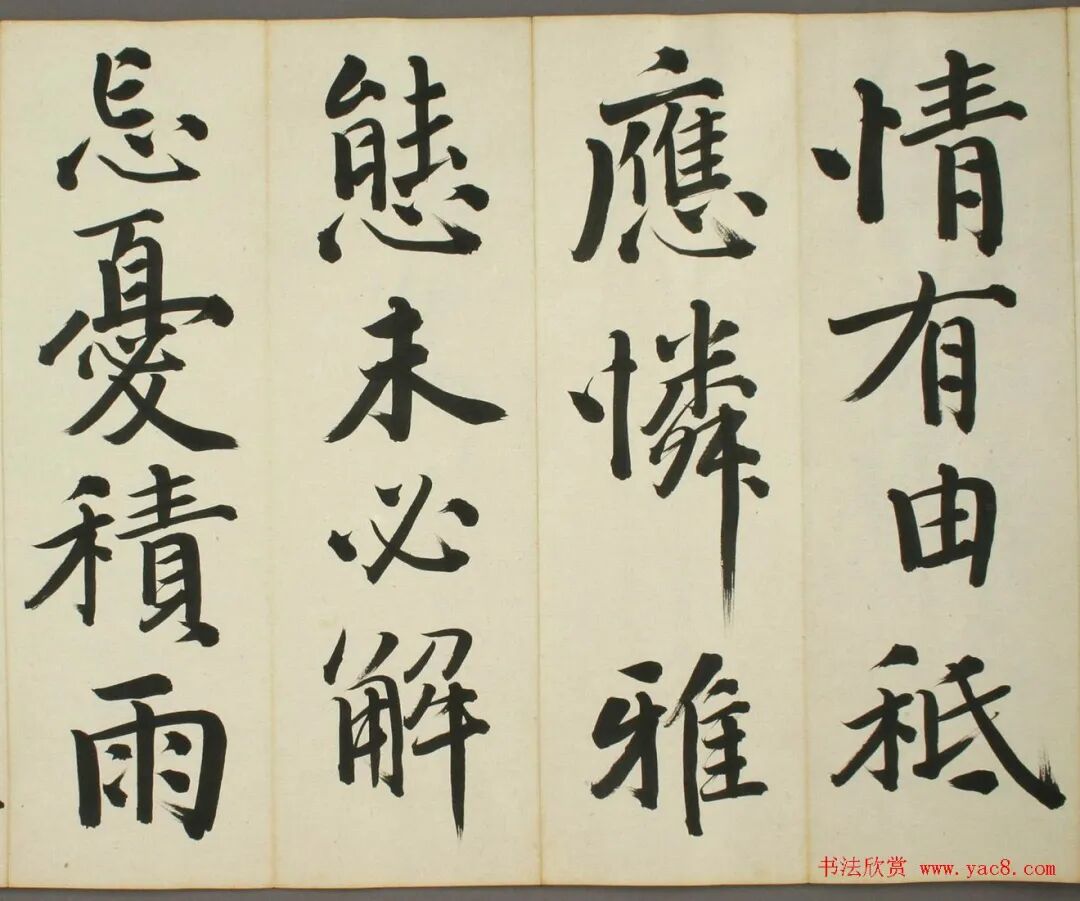 情有由秪
應憐雅
態未必解
忘憂積雨
书法欣赏 www.yac8.com